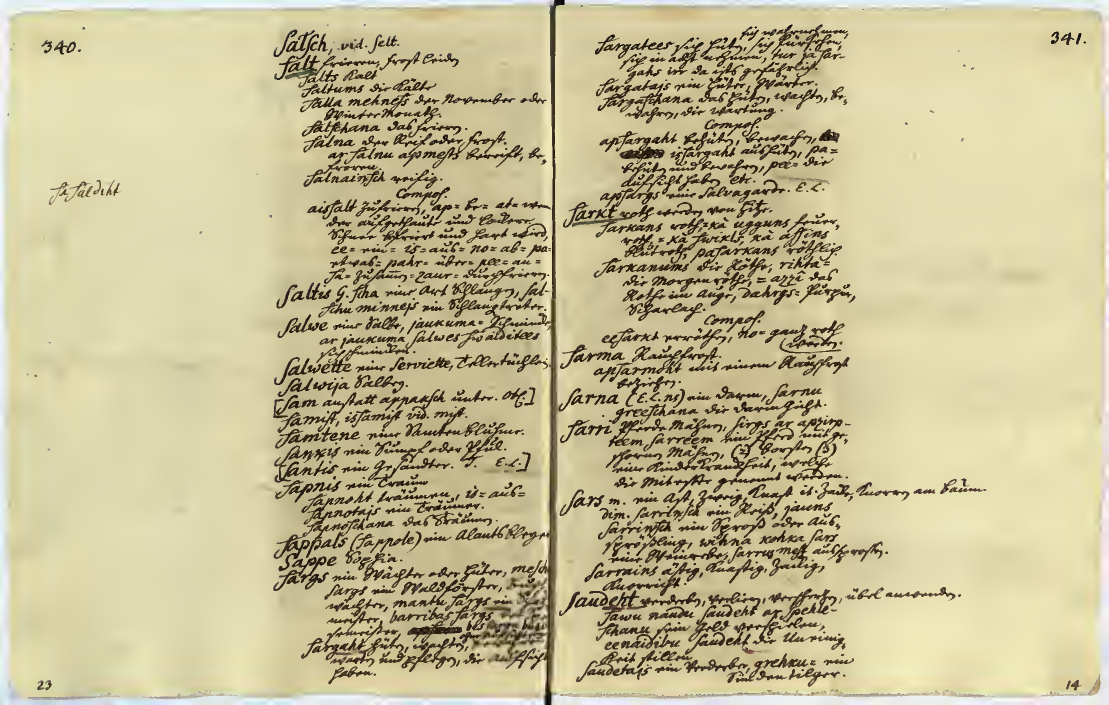 340.
Salsch, vid. selt.
Salt frieren, Frost leiden
Salts kalt
Saltums die Kälte
Salla mehness der November oder
Winter Monath.
Salschana das frieren.
Salna der Reif oder Frost.
ar salnu apmests bereift, be-
froren
Salnainsch reifig.
Compos.
aissalt zufrieren, ap= be= at= wenn
der aufgethaute und lockere
Schnee friert und hart wird,
ee= ein= is= aus= no= ab= pa=
etwas= pahr= über= pee= an=
sa= zusamm= zaur= durchfrieren.
Saltis G. scha eine Art Schlangen, sal-
schu minnejs ein Schlangtreter.
Salwe eine Salbe, jaukuma= Schminke,
ar jaukuma salwes swaiditees
sich schminken.
Salwette eine Serviette, Tellertüchlein
Salwija Salbey.
[Sam anstatt appaksch unter. Off.]
Samist, issamist vid. mist.
Samtene eine Samtenbluhme.
Sankis ein Sumpf oder Pful.
[Santis ein Gesandter. J. E.L.]
Sapnis ein Traum
Sapnoht träumen, is= aus=
Sapnotajs ein Träumer.
Sapnoschana das Träumen.
Sappals (Sappole) ein Alant
Sappe Sophia.
Sargs ein Wächter oder Hüter, mescha
sargs ein Waldförster,
wächter, mantu sargs ein
meister, barribas sargs
Sargaht hüten, wachten,
warten und pflegen, die aufsicht
haben.
23
341.
sich wahrnehmen,
Sargatees sich hüten, sich fürsehen,
sich in acht nehmen, tur jasar-
gahs irr da ists gefährlich.
Sargatajs ein Hüter, Wärter.
Sargaschana das hüten, wachten, be-
wahren, die Wartung.
Compos.
apsargaht behüten, bewachen,
issargaht aushüten, pa=
behüten und bewahren, pee= die
Aufsicht haben etc.
apsargs eine Salvagarde. E.L.
Sarkt roth werden von Hitze.
Sarkans roth= kà ugguns feuer,
roth= kà swikls, kà assins
blutroth, pasarkans röthlich
Sarkanums die Röthe, rihta=
die Morgenröthe, = azzî das
Rothe im Auge, dahrgs= Purpur,
Scharlach.
Compos.
eesarkt erröthen, no= ganz roth
(werden.
Sarma Rauchfrost.
apsarmoht mit einem Rauchfrost
beziehen.
Sarna (E.L. ns) ein Darm, Sarnu
greeschana die Darmgicht.
Sarri Pferde Mähnen, sirgs ar apzirp-
teem sarreem ein Pferd mit ge-
schornen Mähnen, (2) Borsten (3)
eine Kinderkrankheit, welche
die Mitesser genennt werden.
Sars m. ein Ast, Zweig, Knast it. Zacke, Knorren am Baum.
dim. sarrinsch ein Reiß, jauns
sarrinsch ein Sproß oder Aus-
sprößling, wihna kohka sars
eine Weinrebe, sarrus mest aussprossen.
Sarrains ästig, Knastig, Zackig,
Knorricht.
Saudeht verderben, verlieren, verscherzen, übel anwenden.
Sawu naudu saudeht ar spehle-
schanu sein Geld verspielen,
eenaidibu saudeht die Uneinig-
keit stillen.
Saudetajs ein Verderber, grehku= ein
Sünden tilger.
14